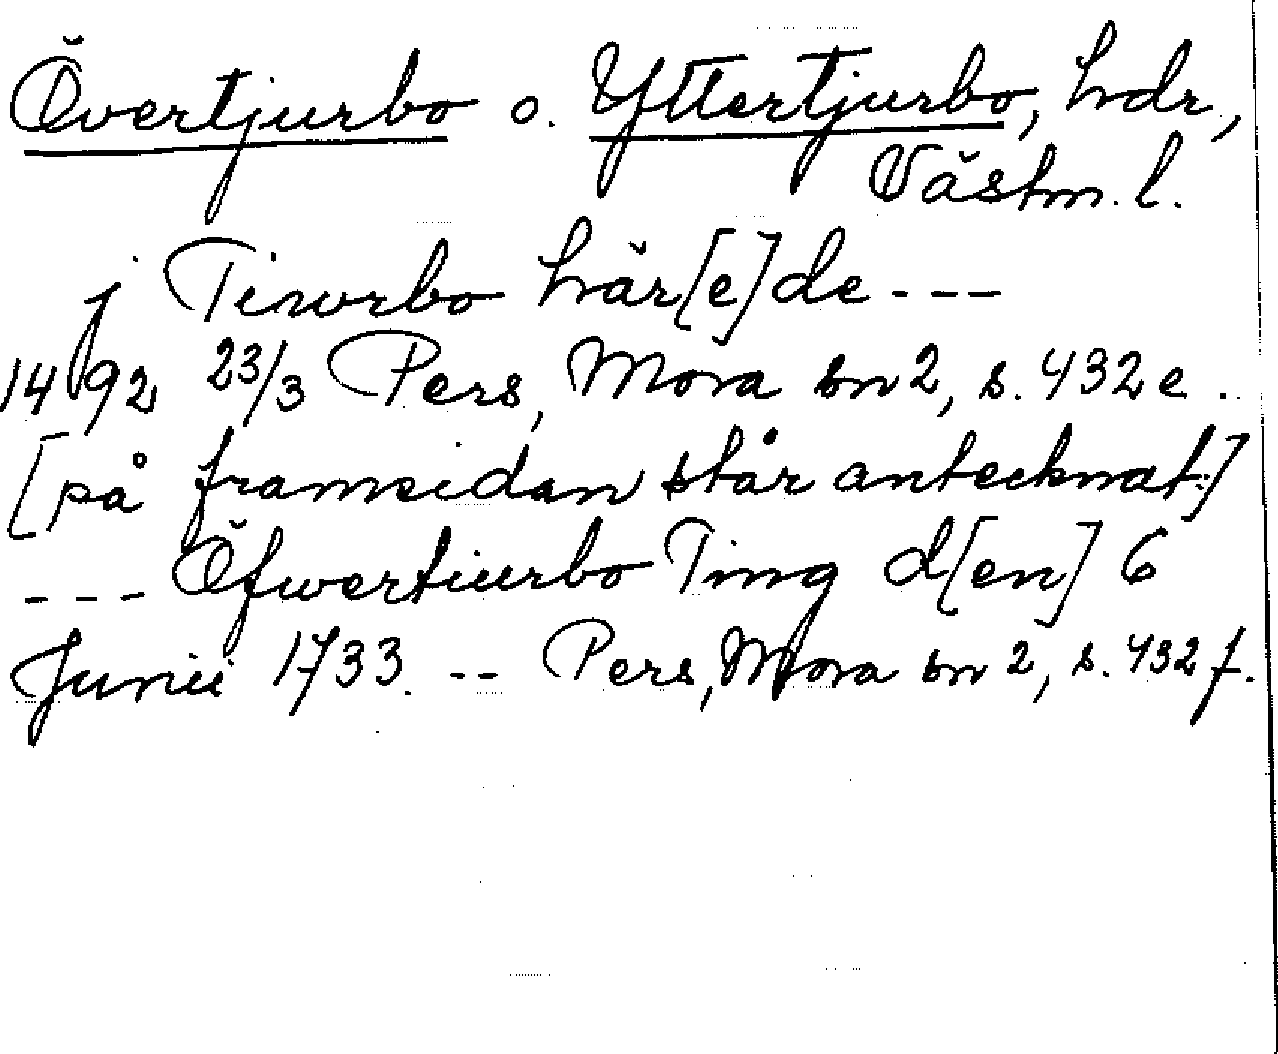 Övertjurbo o. Yttertjurbo, hdr,
Västm. l.
j Tiwrbo här[e]de ---
1492 23/3 Pers, Mora sn 2, s. 432 e.
[på framsidan står antecknat:]
--- Öfwertiurbo Ting d[en] 6
Junii 1733 -- Pers, Mora sn 2, s. 432 f.